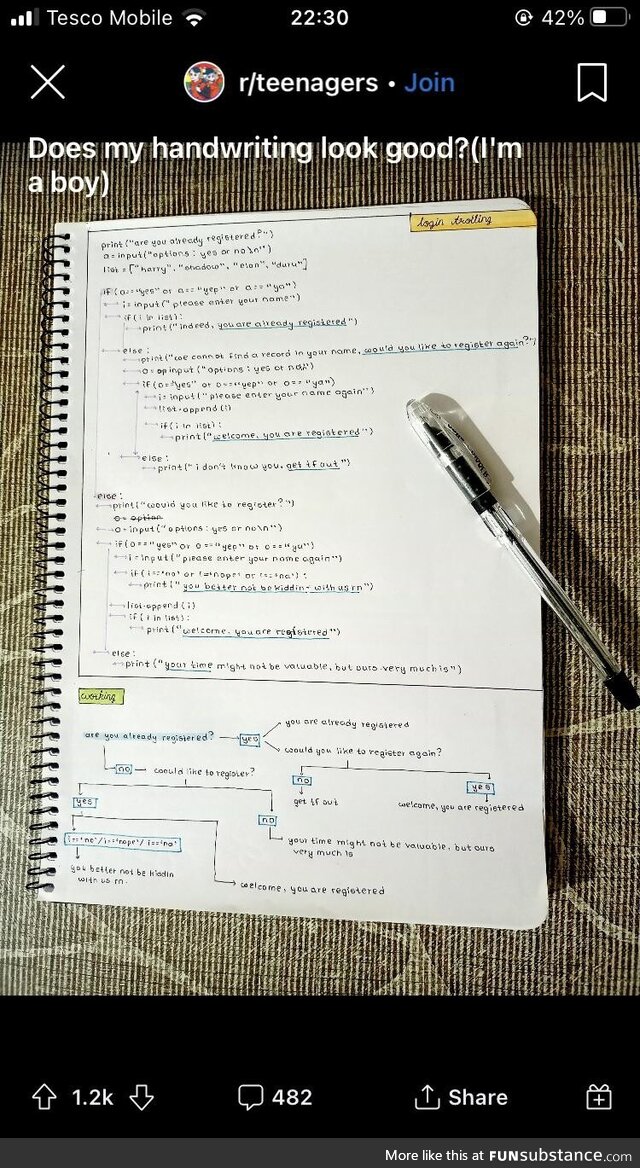 Tesco Mobile 22:30 42%
r/teenagers • Join
Does my handwriting look good?(I'm
a boy)
login trolling
print("are you already registered?")
a=input("options: yes or no\n")
list = ["harry", "shadow", "elon", "duru"]
if(a=="yes" or a=="yep" or a=="ya")
i=input("please enter your name")
if(i in list):
print("indeed, you are already registered")
else:
print("we cannot find a record in your name, would you like to register again?")
o=op input("options: yes or no\")
if(o="yes" or o=="yep" or o=="ya")
i=input("please enter your name again")
list.append(i)
if(i in list):
print("welcome, you are registered")
else:
print("i don't know you, get tf out")
else:
print("would you like to register?")
o= option
o=input("options: yes or no\n")
if(o=="yes" or o=="yep" or o=="ya")
i=input("please enter your name again")
if(i=='no' or i='nope' or i=='na'):
print("you better not be kidding with us rn")
list.append(i)
if(i in list):
print("welcome, you are registered")
else:
print("your time might not be valuable, but ours very much is")
working
you are already registered
are you already registered? yes
would you like to register again?
no would like to register?
no yes
yes get tf out welcome, you are registered
no
i=='no'/i=='nope'/i=='na'
your time might not be valuable, but ours
very much is
you better not be kiddin
with us rn.
welcome, you are registered
1.2k 482 Share
More like this at FUNsubstance.com